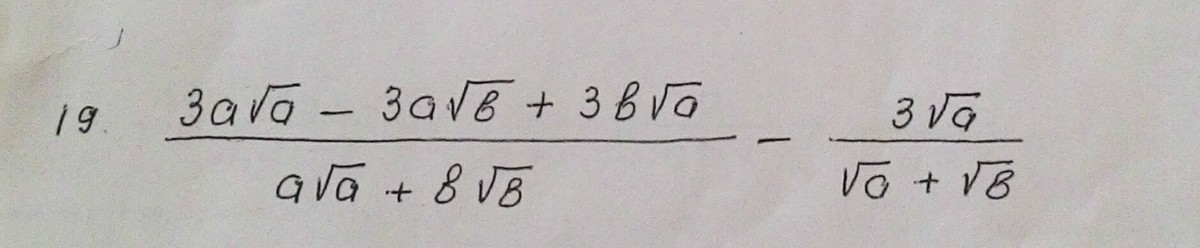 19. \frac{3a\sqrt{a} - 3a\sqrt{b} + 3b\sqrt{a}}{a\sqrt{a} + b\sqrt{b}} - \frac{3\sqrt{a}}{\sqrt{a} + \sqrt{b}}